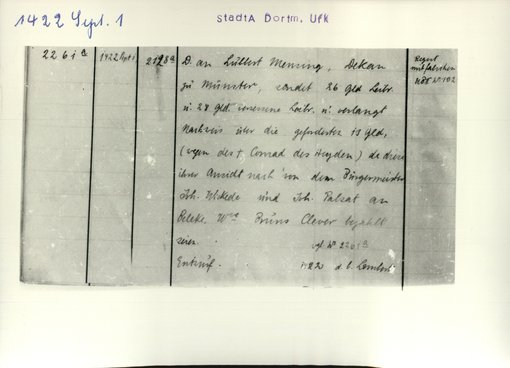 1422 Sept. 1
StadtA Dortm. Urk
2261a 1422 Sept 1 2128a
D. an Lübbert Mensing, Dekan
zu Münster, sendet 26 Gld Leibr.
u. 28 Gld Leibr. u. verlangt
Nachweis über die geforderten 13 Gld.
(wegen des † Conrad des Heyden) da diese
ihrer Ansicht nach von dem Bürgermeister
Joh. Wickede und Joh. Palsat an
Beleke Wwe Bruns Clever bezahlt
seien. vgl Nr 2261a
Entwurf. d. b.
Regest
Nr 102